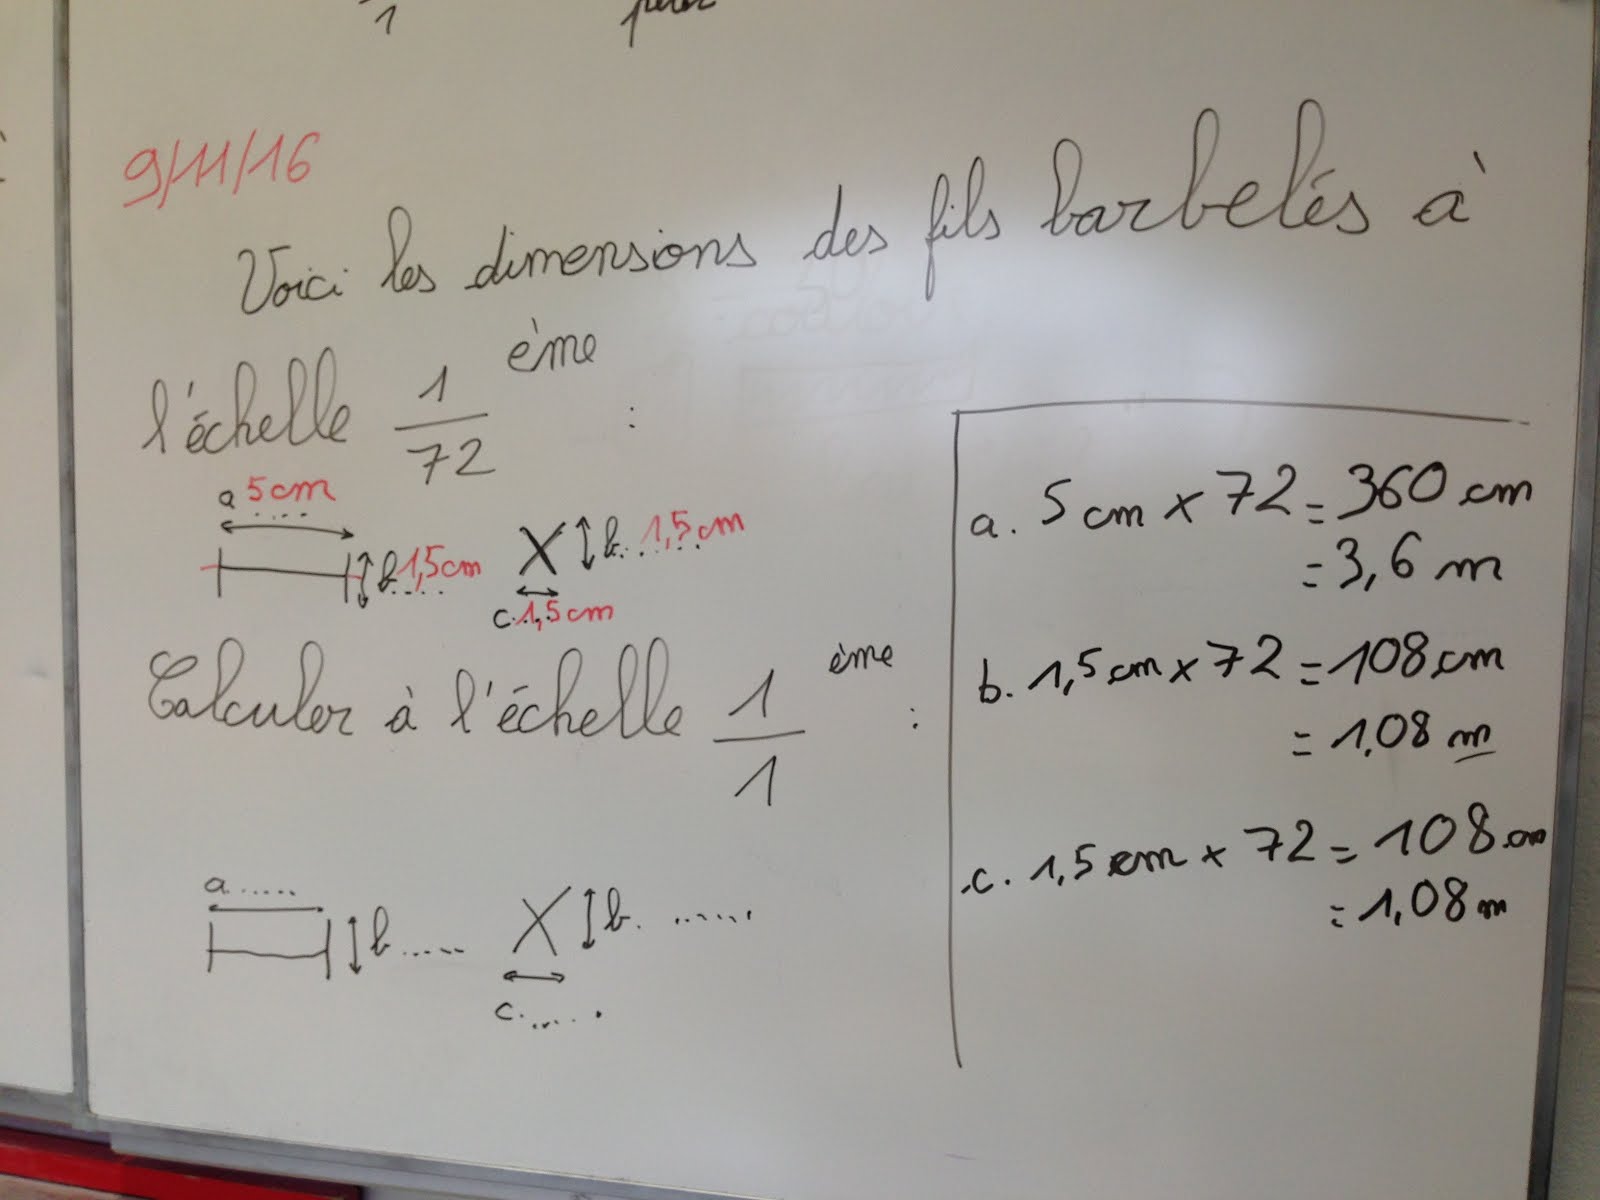 1
9/11/16
Voici les dimensions des fils barbelés à
l'échelle 1/72 ème :
a 5cm
b 1,5cm
b. 1,5cm
c. 1,5cm
Calculer à l'échelle 1/1 ème :
a......
b......
b. ......
c. ......
a. 5cm x 72 = 360 cm
= 3,6 m
b. 1,5cm x 72 = 108 cm
= 1,08 m
c. 1,5cm x 72 = 108 cm
= 1,08 m